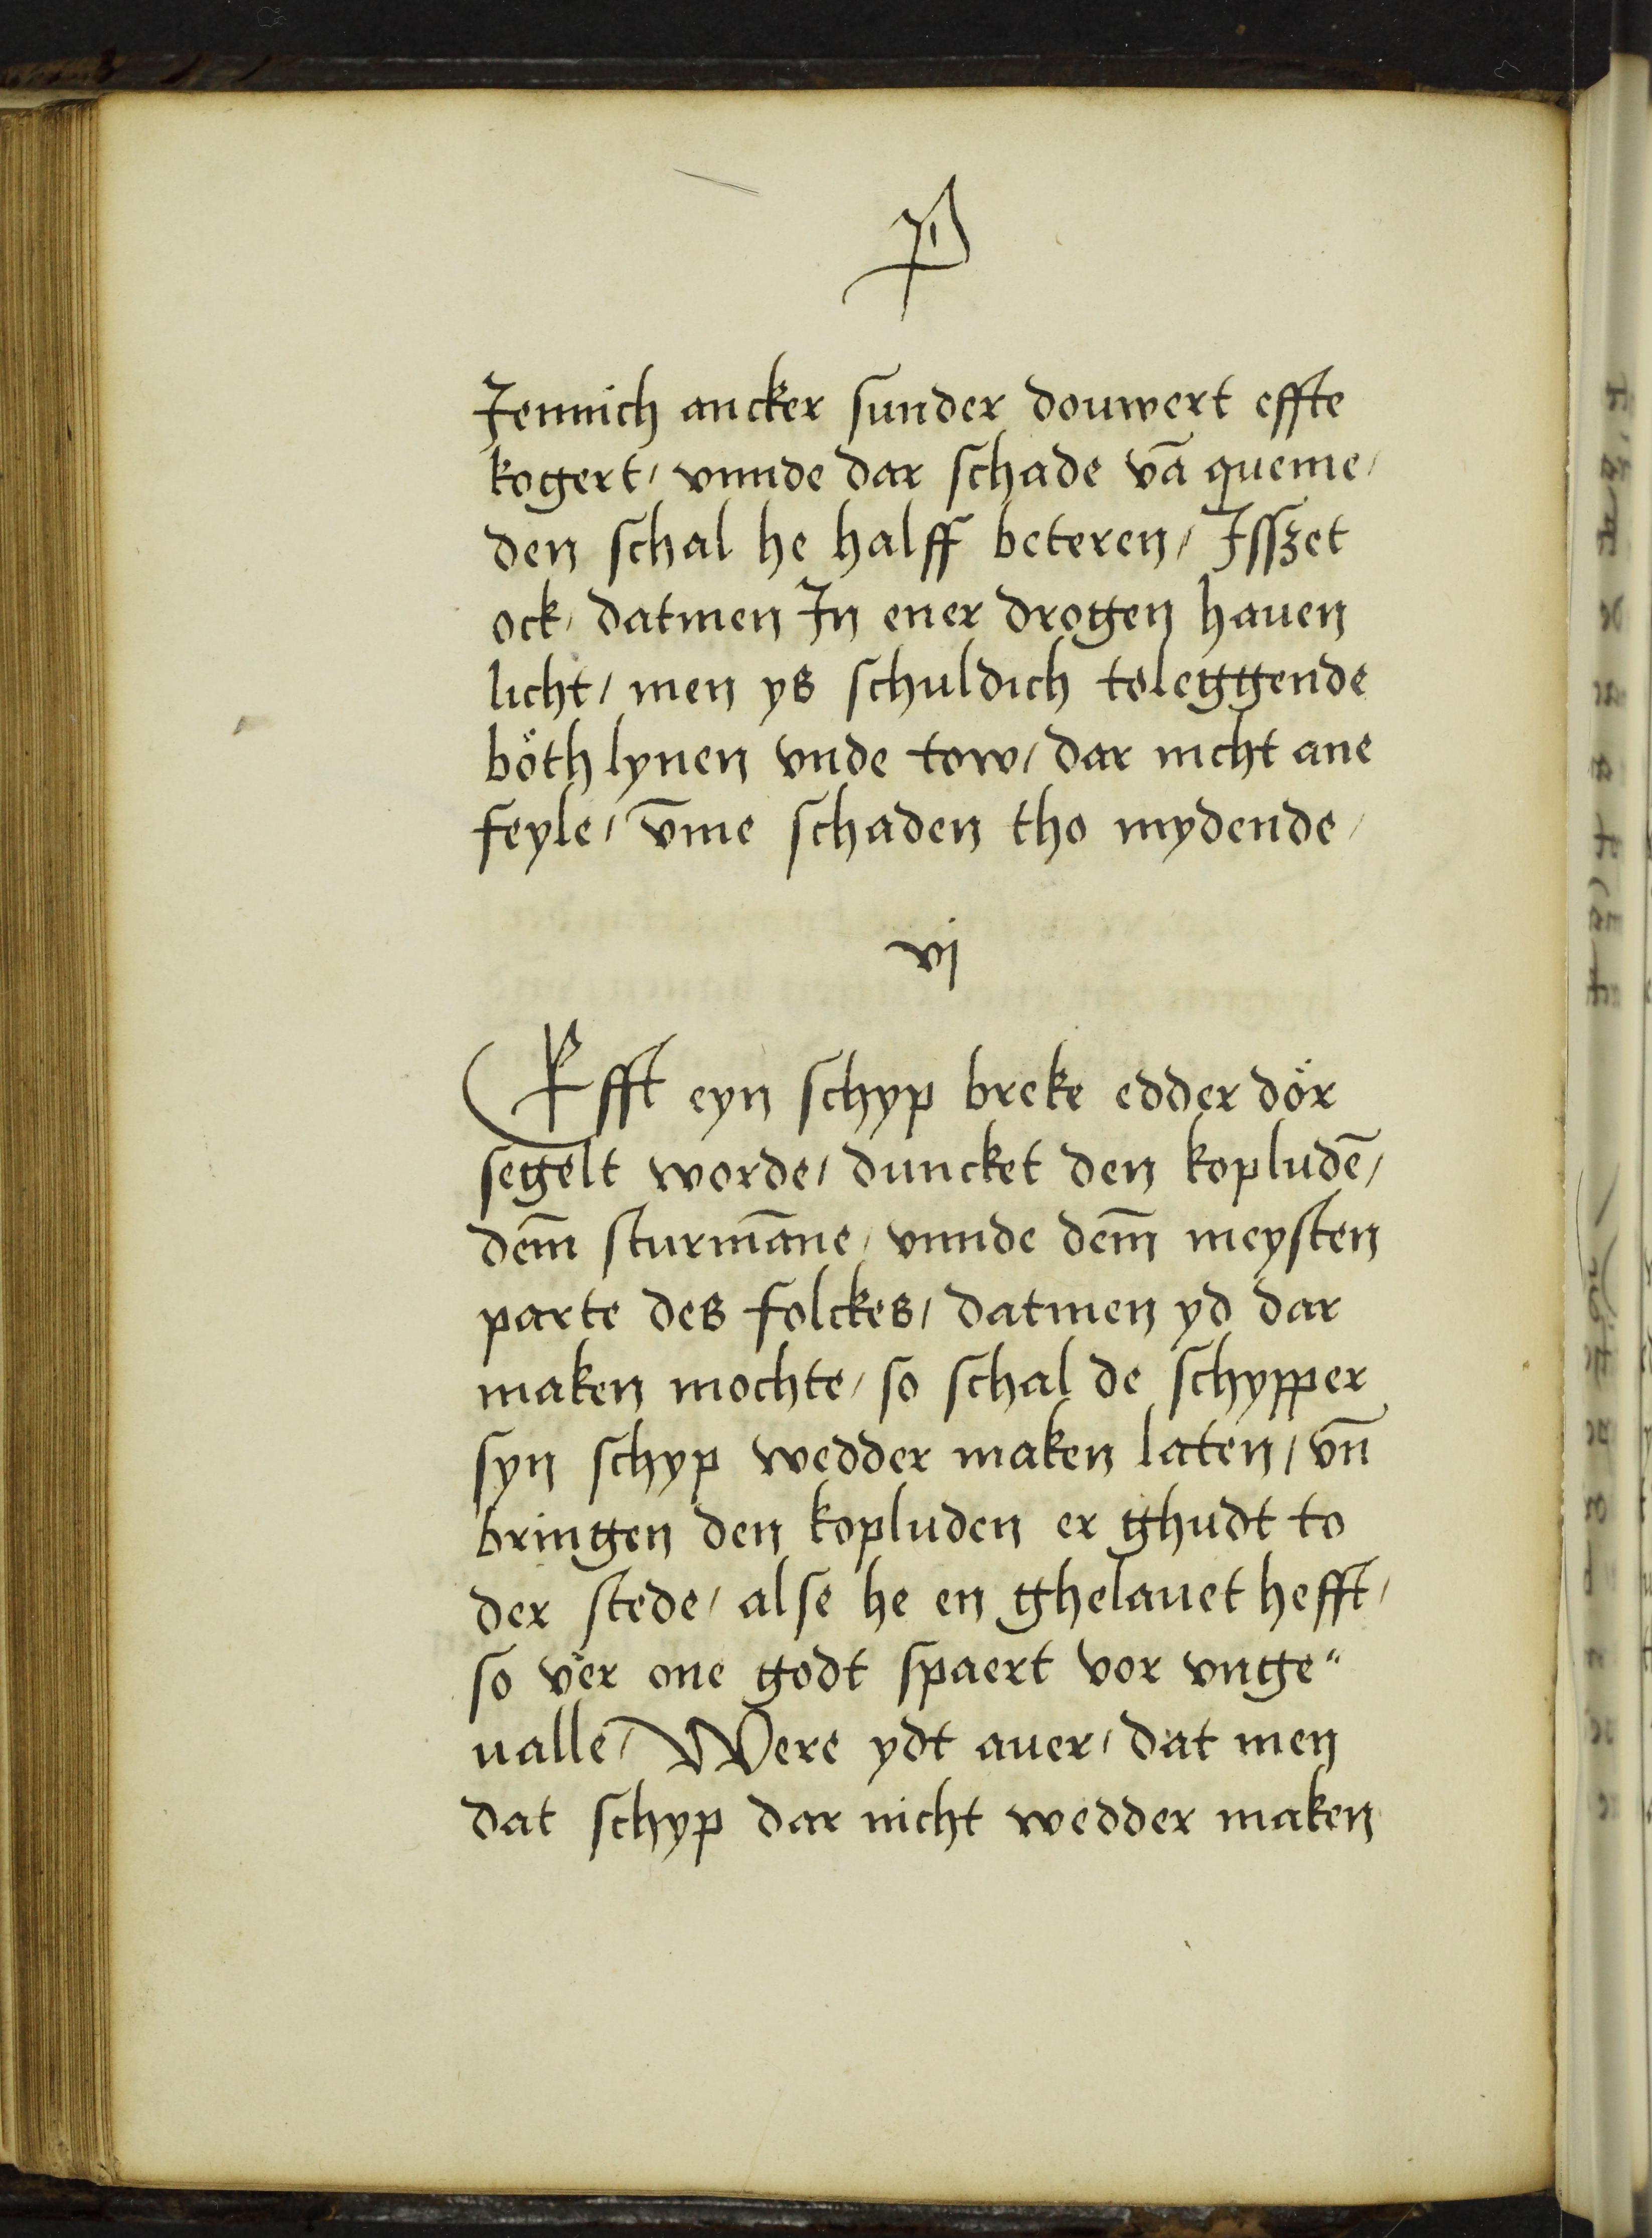 P
Jennich ancker sunder douwert effte
kogert / vnnde dar schade vā queme /
den schal he halff beteren / Jsszet
ock / datmen Jn ener drogen hauen
licht / men ys schuldich toleggende
böth lynen vnde tow / dar nicht ane
feyle / v̄me schaden tho mydende /
vj
Efft eyn schyp breke edder dör
segelt worde / duncket den kopludē /
dem̄ sturmāne / vnnde dem̄ meysten
parte des folckes / datmen yd dar
maken mochte / so schal de schypper
syn schyp wedder maken laten / vn̄
bringen den kopluden er ghudt to
der stede / alse he en ghelauet hefft /
so vër one godt spaert vor vnge"
ualle / Were ydt auer / dat men
dat schyp dar nicht wedder maken